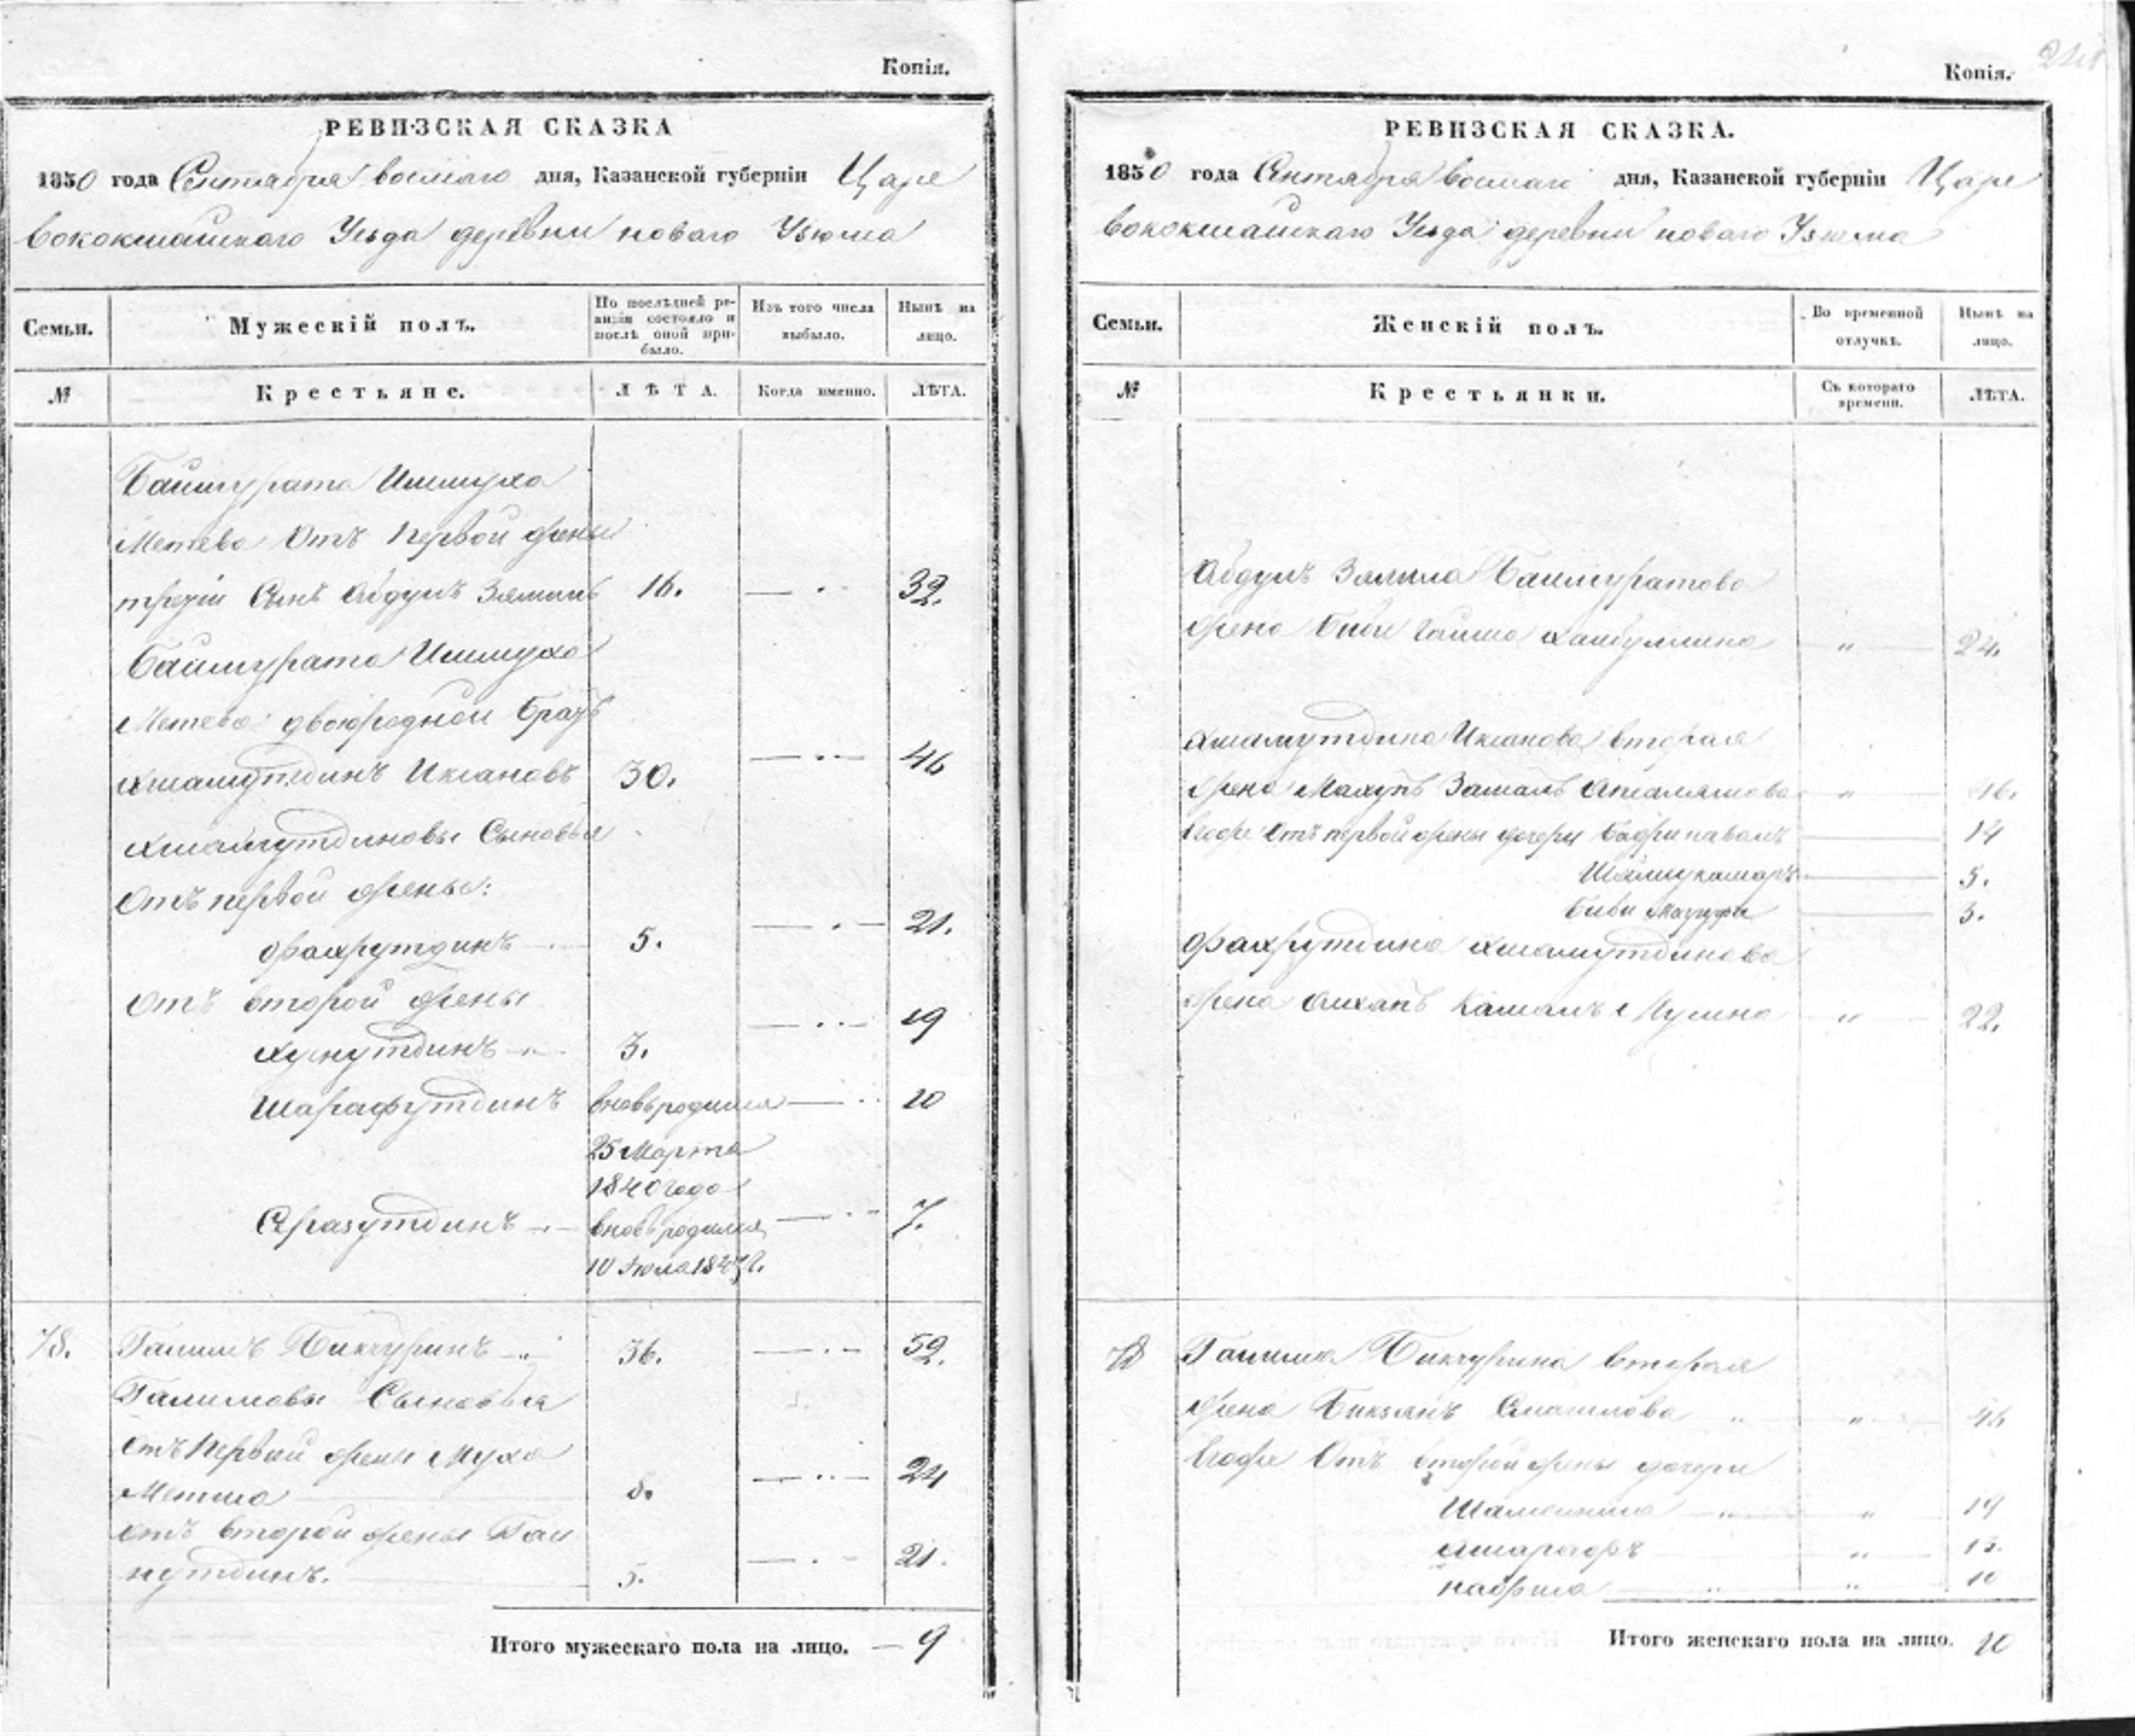 Копія.
РЕВИЗСКАЯ СКАЗКА
1850 года Сентября восмаго дня, Казанской губерніи Царе
вококшайскаго Уѣзда деревни новаго Узюма
Семьи.
Мужескій полъ.
По послѣдней ре-
визіи состояло и
послѣ оной при-
было.
Изъ того числа
выбыло.
Нынѣ на
лицо.
№
Крестьяне.
ЛѢТА.
Когда именно.
ЛѢТА.
Баймурата Ишмуха
метева Отъ первой жены
третій Сынъ Абдулъ Зямиль 16. 32.
Баймурата Ишмуха
метева двоюродной братъ
Хисамутдинъ Иксановъ 30. 46
Хисамутдиновы Сыновья
Отъ первой жены:
Фахрутдинъ 5. 21.
Отъ второй жены
Хуснутдинъ 3. 19
Шарафутдинъ вновь родился 10
25 Марта
1840 года
Сразутдинъ вновь родился 7.
10 Іюля 1843 г.
78. Галимъ Бикчуринъ 36. 52.
Галимовы Сыновья
Отъ первой жены Муха
метша 8. 24
Отъ второй жены Гай
нутдинъ. 5. 21.
Итого мужескаго пола на лицо. — 9
Копія.
РЕВИЗСКАЯ СКАЗКА.
1850 года Сентября восмаго дня, Казанской губерніи Царе
вококшайскаго Уѣзда деревни новаго Узюма
Семьи.
Женскій полъ.
Во временной
отлучкѣ.
Нынѣ на
лицо.
№
Крестьянки.
Съ котораго
времени.
ЛѢТА.
Абдулъ Зямиля Баймуратова
жена Биби Гайша Хайбуллина " 24.
Хисамутдина Иксанова вторая
жена Махупъ Замалъ " 46.
Егоже Отъ первой жены дочери 14
Шамсукамаръ 5.
Биби 3.
Фахрутдина Хисамутдинова
жена Камалъ " 22.
78 Галима Бикчурина вторая
жена Бикзянъ Смаилова " " 46
Егоже Отъ второй жены дочери
" " 19
Ашарафъ " 13.
" " 10
Итого женскаго пола на лицо. 10